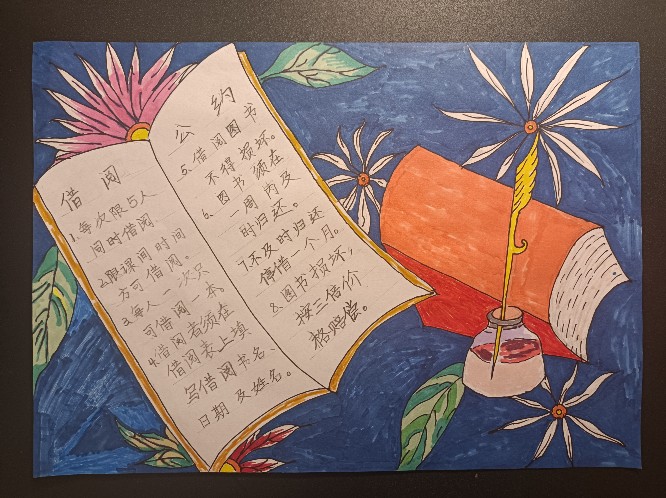 借阅
1.每次限5人
同时借阅
2.限课间时间
方可借阅。
3.每人一次只
可借阅一本
4.借阅者须在
借阅表上填
写借阅书名、
日期及姓名。
公约
5.借阅图书
不得损坏。
6.图书须在
一周内及
时归还。
7不及时归还
停借一个月。
8.图书损坏，
按三倍价
格赔偿。